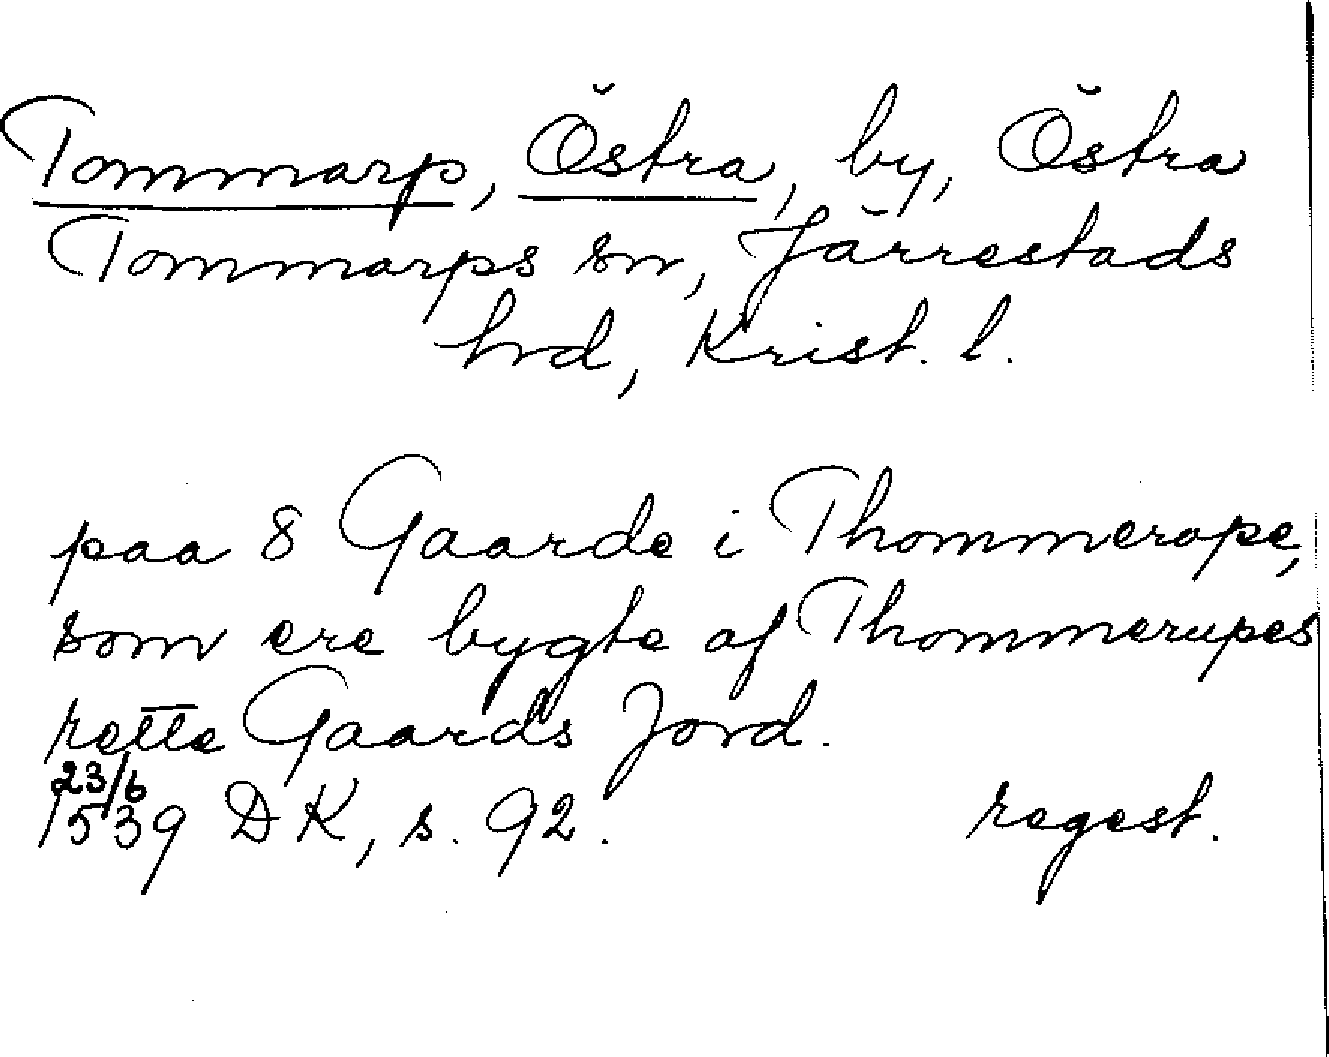 Tommarp, Östra, by, Östra
Tommarps sn, Järrestads
hrd, Krist. l.
paa 8 Gaarde i Thommerope,
som ere bygte af Thommerupes
rette Gaards Jord.
23/6
1539 DK, s. 92. regest.